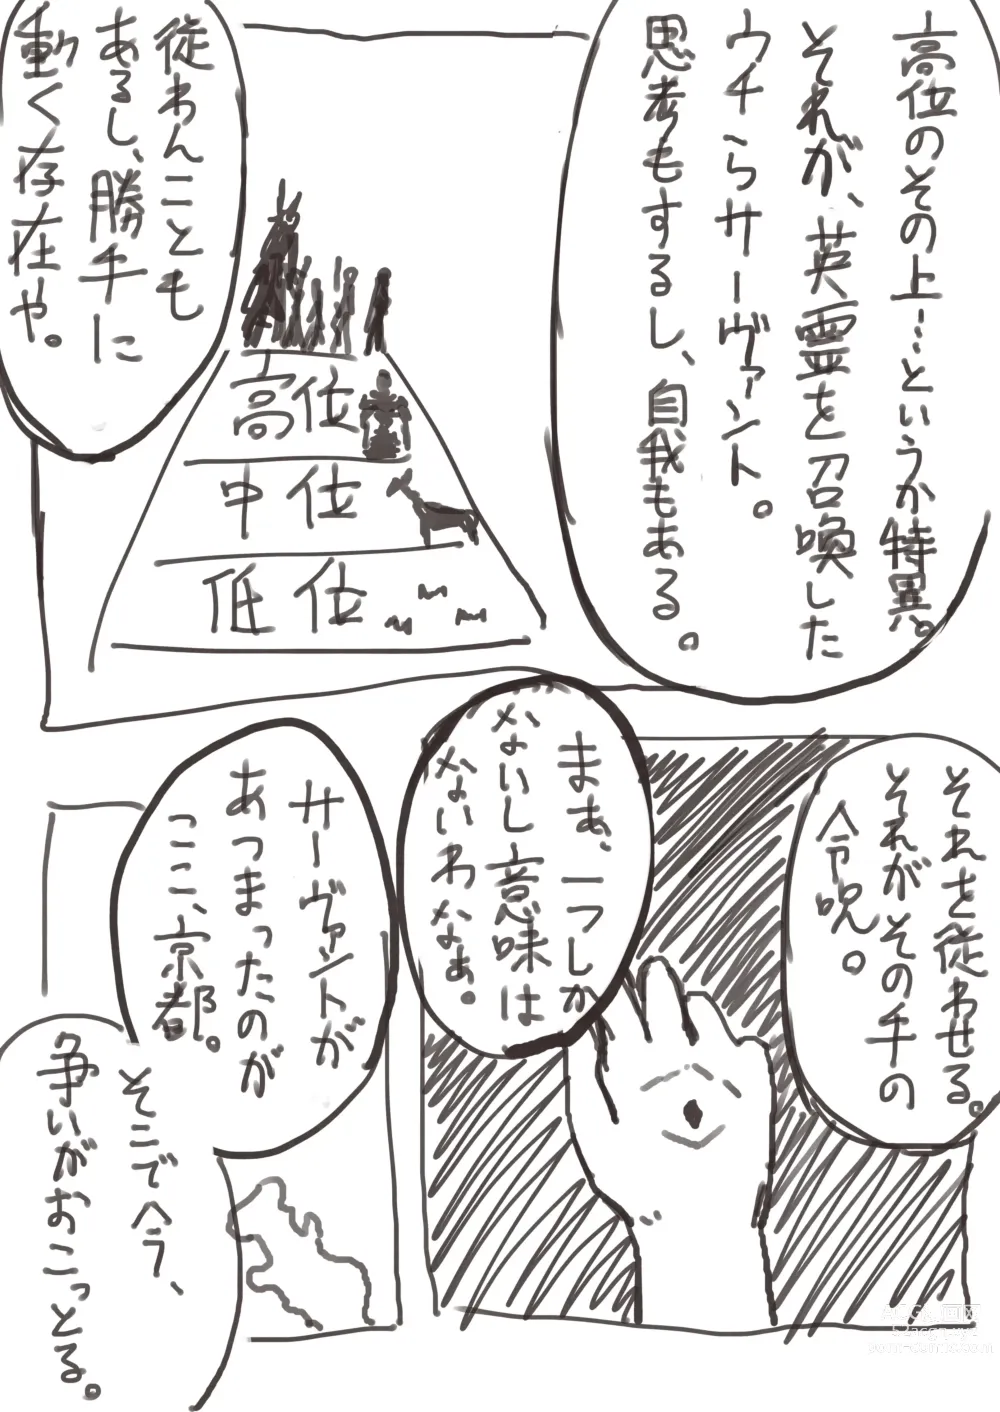 高位のその上…というか特異。
それが、英霊を召喚した
ウチらサーヴァント。
思考もするし、自我もある。
従わんことも
あるし、勝手に
動く存在や。
高位
中位
低位
それを従わせる。
それがその手の
令呪。
まぁ、一つしか
ないし意味は
ないわなぁ。
サーヴァントが
あつまったのが
ここ、京都。
そこで今、
争いがおこっとる。